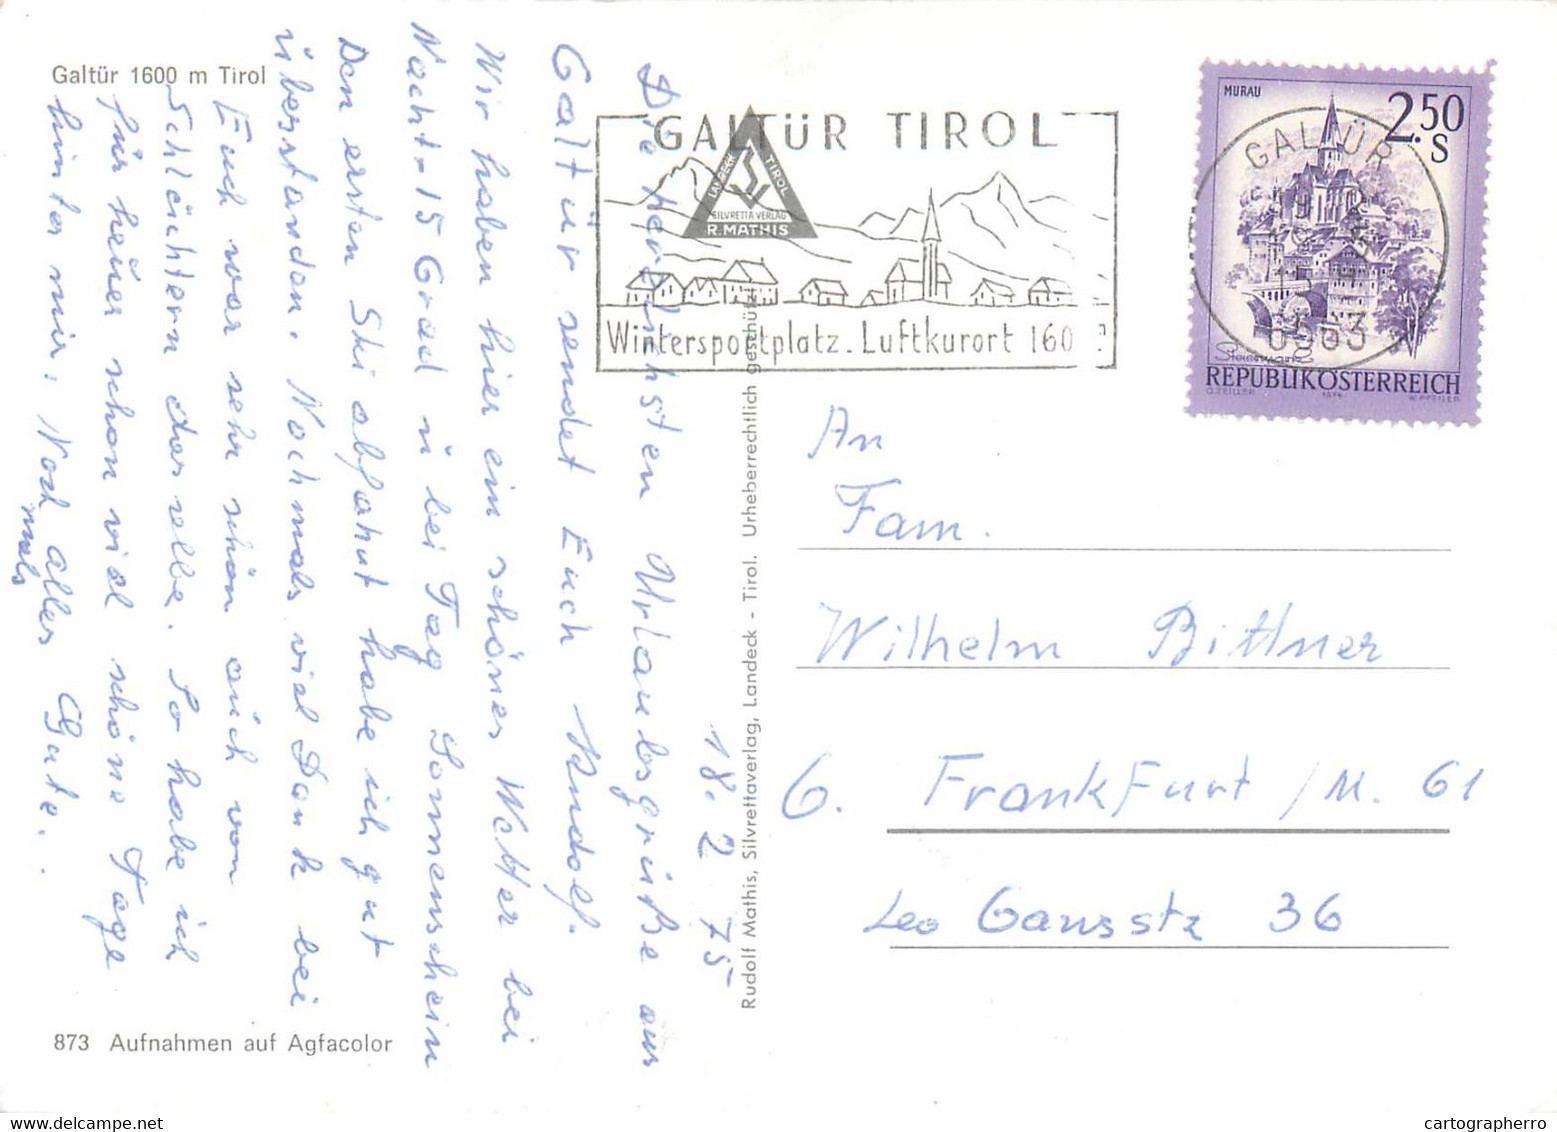 Galtür 1600 m Tirol
18.2.75
Die herzlichsten Urlaubsgrüße aus
Galtür sendet Euch Rudolf.
Wir haben hier ein schönes Wetter bei
Nacht - 15 Grad ü bei Tag Sonnenschein
Den ersten Ski abfahrt habe ich gut
überstanden. Nochmals viel Dank bei
Euch war sehr schön auch von
das selbe. So habe ich
für heuer schon viel schöne Tage
hinter mir. Noch
mals
alles Gute.
873 Aufnahmen auf Agfacolor
Rudolf Mathis, Silvrettaverlag, Landeck - Tirol. Urheberrechtlich geschützt
GALTÜR TIROL
LANDECK TIROL
SILVRETTA VERLAG
R. MATHIS
Wintersportplatz. Luftkurort 160
MURAU
2.50
S
GALTÜR
6563
Steiermark
REPUBLIK ÖSTERREICH
O. ZEILER 1974 W. PFEILER
An
Fam.
Wilhelm Bittner
6. Frankfurt /M. 61
Leo Gausstr 36
cartographerro